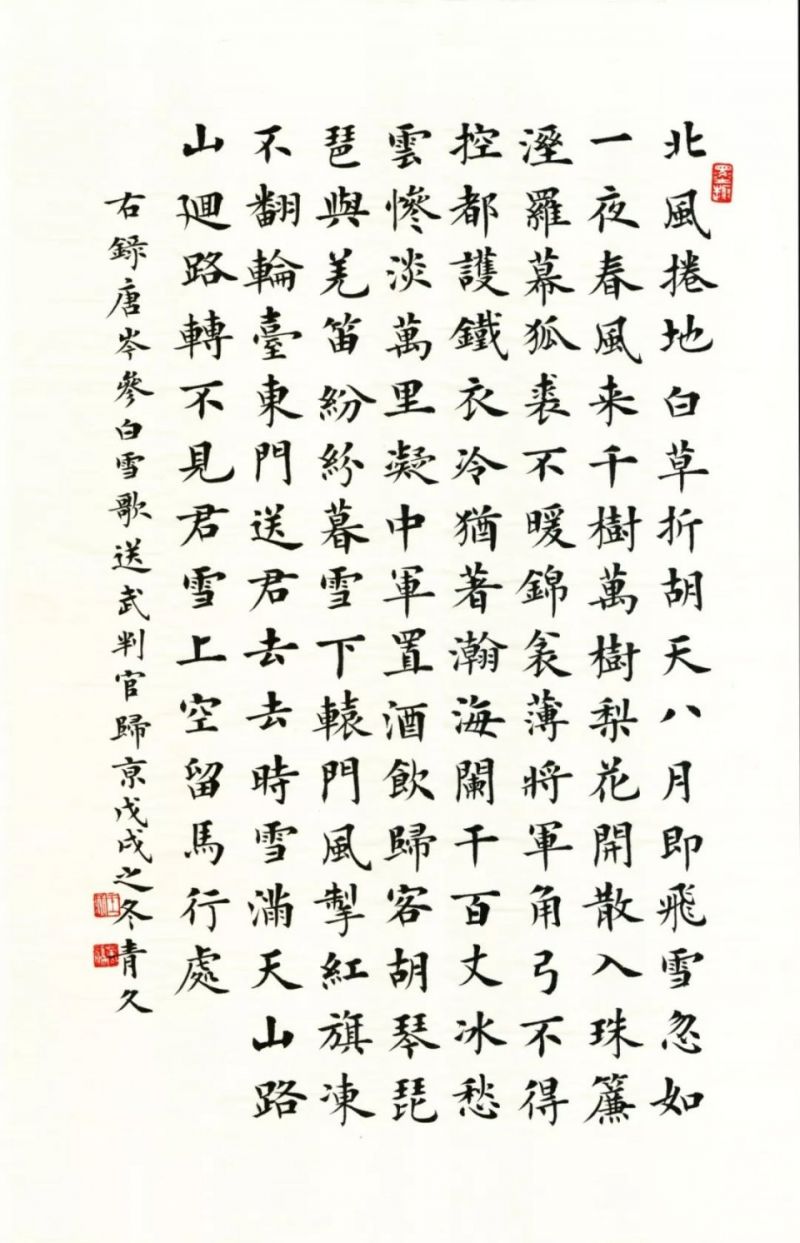 北風捲地白草折胡天八月即飛雪忽如
一夜春風来千樹萬樹梨花開散入珠簾
溼羅幕狐裘不暖錦衾薄將軍角弓不得
控都護鐵衣冷猶著瀚海闌干百丈冰愁
雲慘淡萬里凝中軍置酒飲歸客胡琴琵
琶與羌笛紛紛暮雪下轅門風掣紅旗凍
不翻輪臺東門送君去去時雪滿天山路
山迴路轉不見君雪上空留馬行處
右録唐岑參白雪歌送武判官歸京戊戌之冬青久